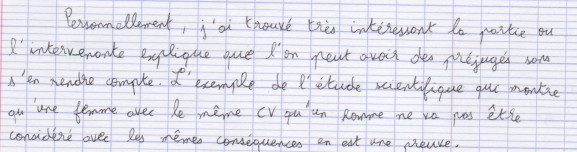 Personnellement, j'ai trouvé très intéressant la partie ou
l'intervenante explique que l'on peut avoir des préjugés sans
s'en rendre compte. L'exemple de l'étude scientifique qui montre
qu'une femme avec le même CV qu'un homme ne va pas être
considéré avec les mêmes conséquences en est une preuve.